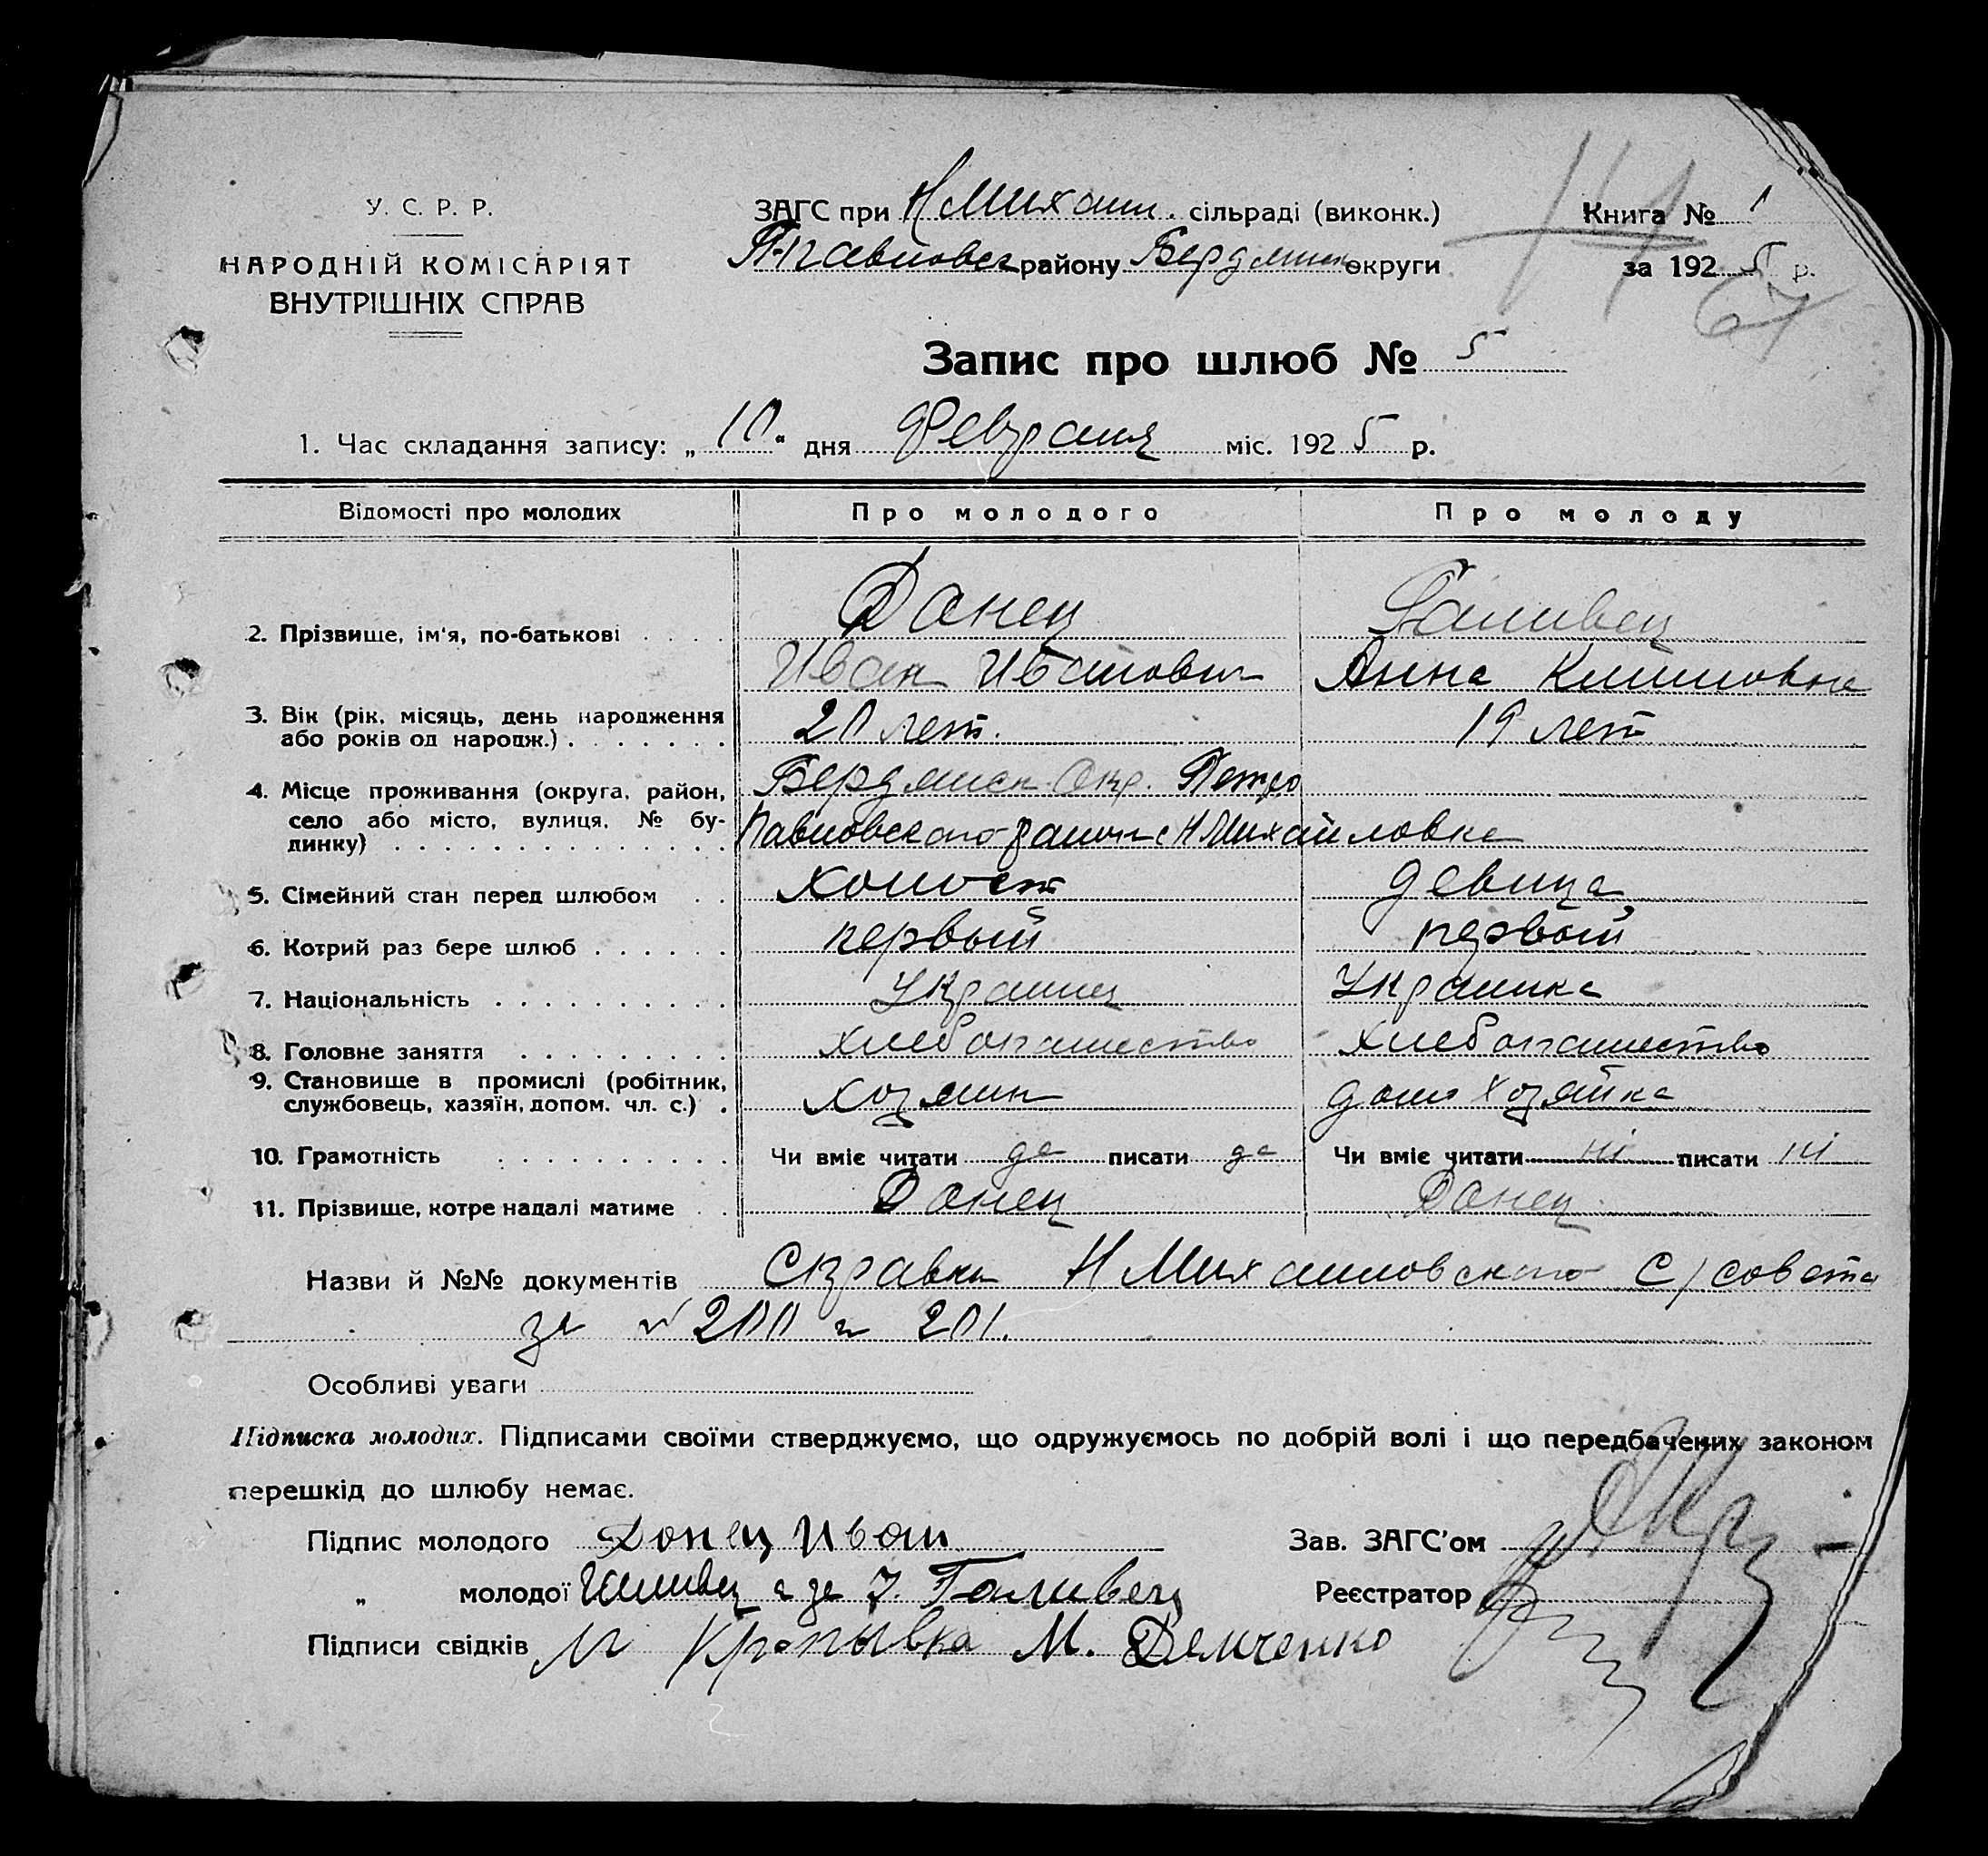 У. С. Р. Р.
НАРОДНІЙ КОМІСАРІЯТ
ВНУТРІШНІХ СПРАВ
ЗАГС при НМихайл. сільраді (виконк.)
П-Павловск району Бердянск округи
Книга № 1
за 1925 р.
67
Запис про шлюб № 5
1. Час складання запису: „10“ дня Февраля міс. 1925 р.
Відомості про молодих Про молодого Про молоду
2. Прізвище, ім'я, по-батькові . . . . Данец Галивец
Иван Иванович Анна Климовна
3. Вік (рік, місяць, день народження
або років од народж.) . . . . . . . 20 лет. 19 лет
4. Місце проживання (округа, район, Бердянск Окр. Петро
село або місто, вулиця, № бу-
динку) . . . . . . . . . . . . . . . Павловского района с НМихайловка
5. Сімейний стан перед шлюбом . . холост девица
6. Котрий раз бере шлюб . . . . . . первый первый
7. Національність . . . . . . . . . . Украинец Украинка
8. Головне заняття . . . . . . . . . хлебопашество хлебопашество
9. Становище в промислі (робітник,
службовець, хазяїн, допом. чл. с.) . хозяин домохозяйка
10. Грамотність . . . . . . . . . . Чи вміє читати да писати да Чи вміє читати ні писати ні
11. Прізвище, котре надалі матиме . . Данец Данец
Назви й №№ документів Справки НМихайловского С/совета
за № 200 и 201.
Особливі уваги
Підписка молодих. Підписами своїми стверджуємо, що одружуємось по добрій волі і що передбачених законом
перешкід до шлюбу немає.
Підпис молодого Донец Иван Зав. ЗАГС'ом
„ молодої Галивец Реєстратор
Підписи свідків Кропывка М. Демченко